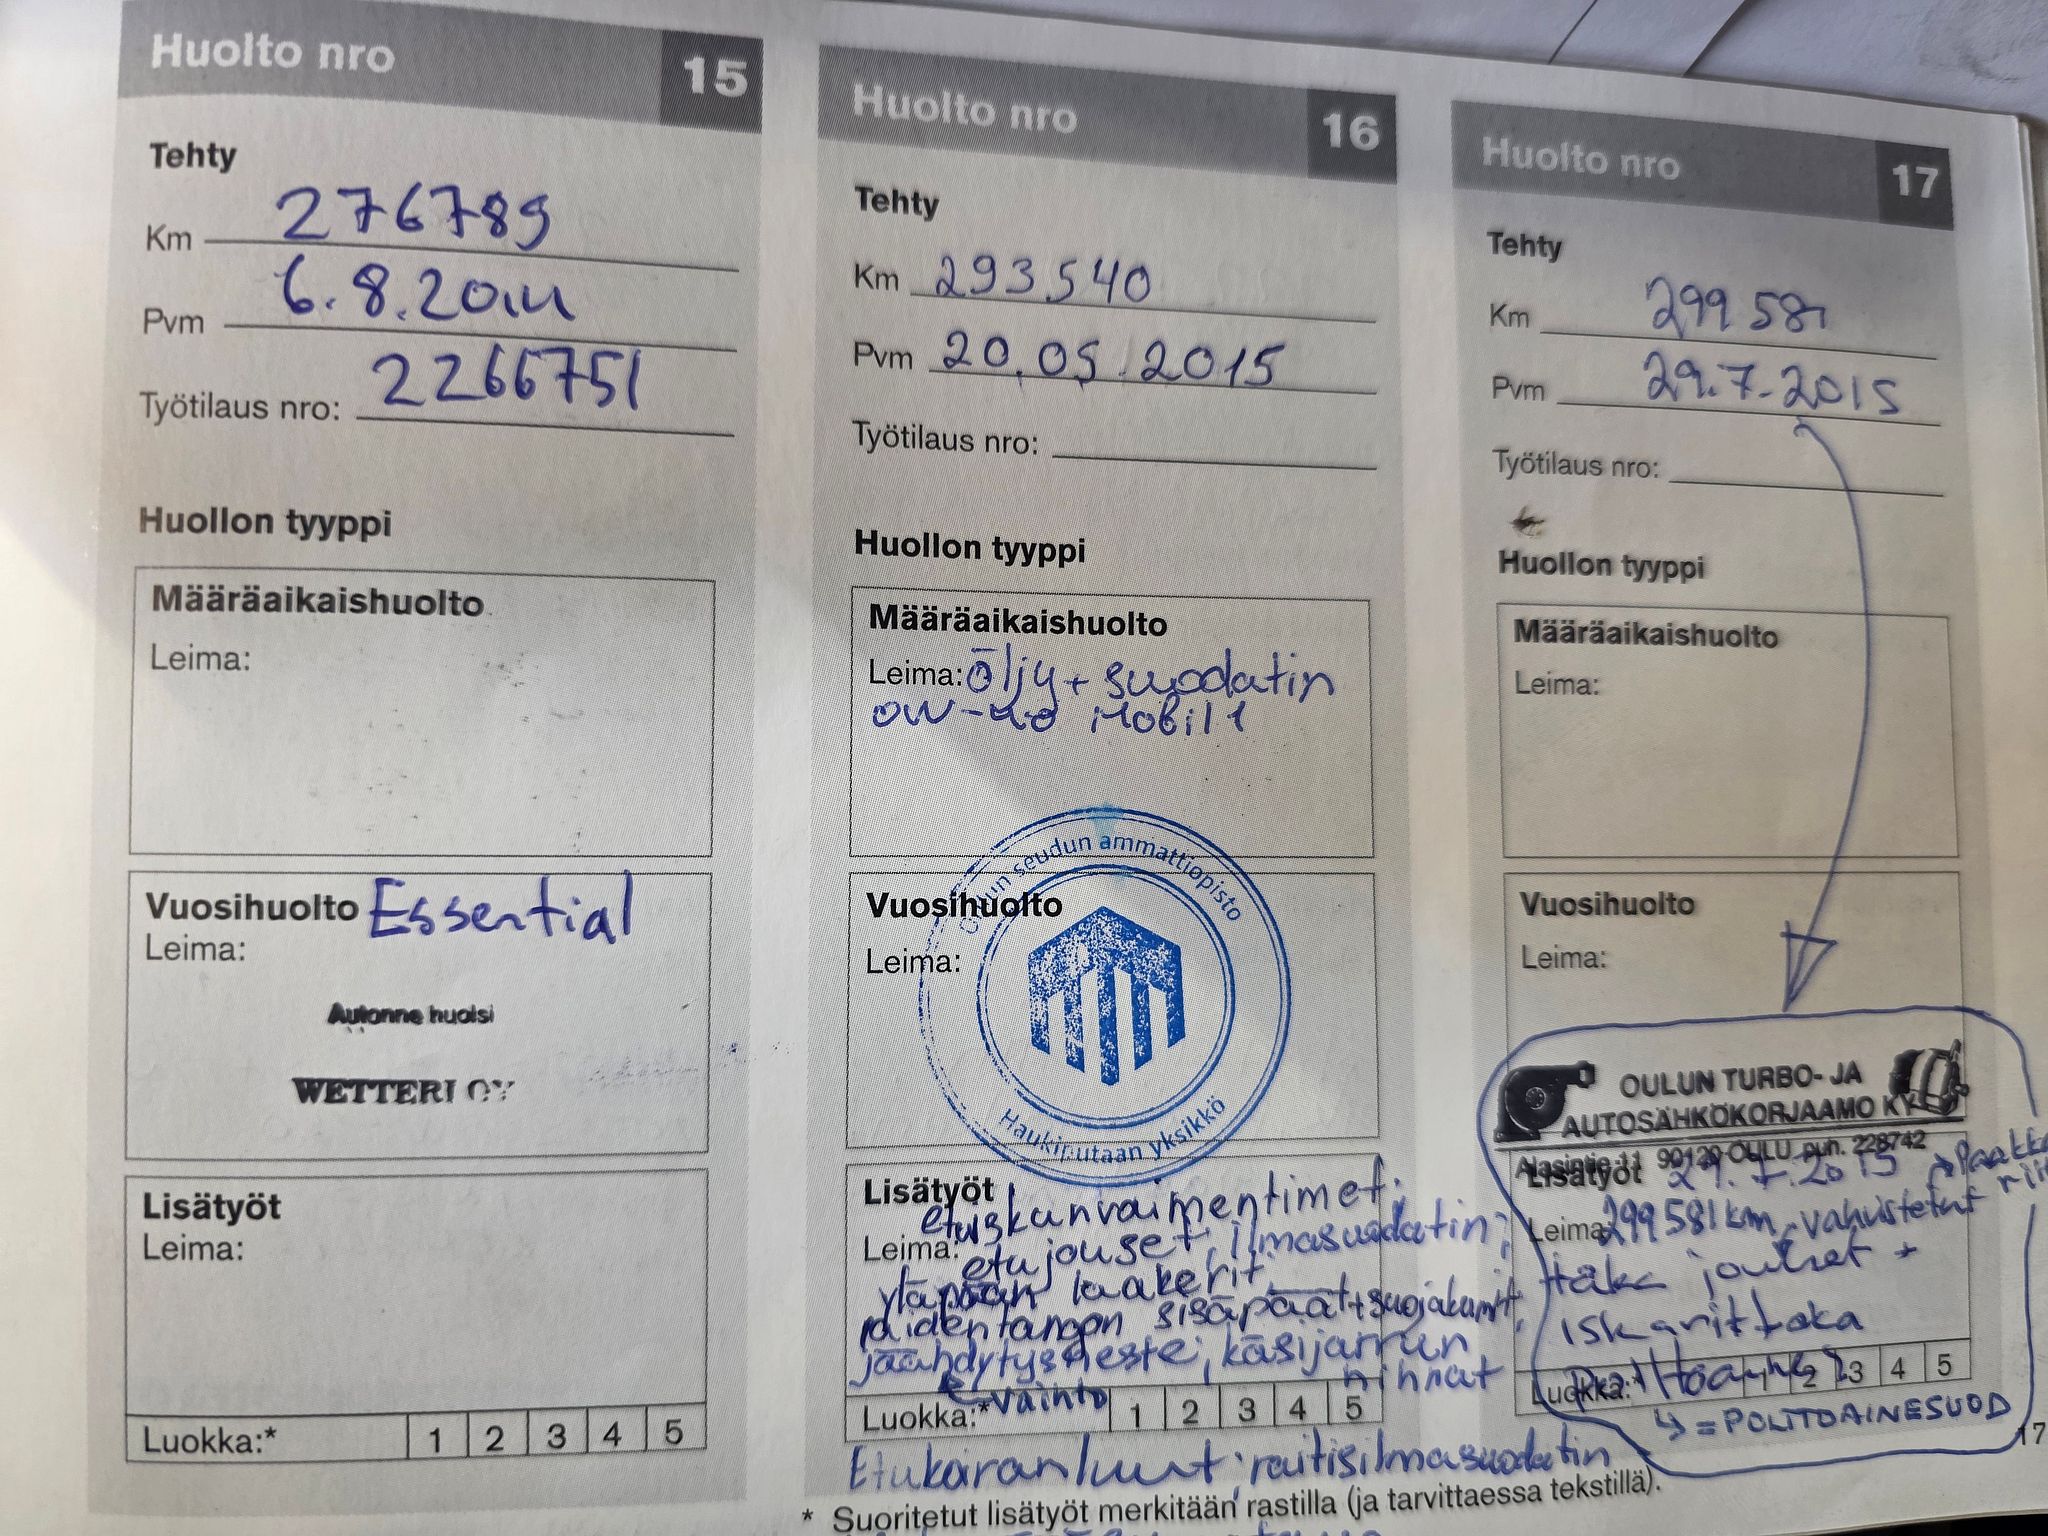 Huolto nro 15
Tehty
Km 276789
Pvm 6.8.2014
Työtilaus nro: 2266751
Huollon tyyppi
Määräaikaishuolto
Leima:
Vuosihuolto Essential
Leima:
Autonne huolsi
WETTERI OY
Lisätyöt
Leima:
Luokka:* 1 2 3 4 5
Huolto nro 16
Tehty
Km 293540
Pvm 20.05.2015
Työtilaus nro:
Huollon tyyppi
Määräaikaishuolto
Leima: Öljy + suodatin
0W-40 Mobil 1
Vuosihuolto
Leima:
Oulun seudun ammattiopisto
Haukiputaan yksikkö
Lisätyöt
etuiskunvaimentimet.
Leima: etujouset, ilmasuodatin,
yläpään laakerit
raidetangon sisäpäät + suojakumit,
jäähdytysneste, käsijarrun
vaihto nihnat
Luokka:* 1 2 3 4 5
Etukoiranluut, raitisilmasuodatin
* Suoritetut lisätyöt merkitään rastilla (ja tarvittaessa tekstillä).
Huolto nro 17
Tehty
Km 299 581
Pvm 29.7.2015
Työtilaus nro:
Huollon tyyppi
Määräaikaishuolto
Leima:
Vuosihuolto
Leima:
OULUN TURBO- JA
AUTOSÄHKÖKORJAAMO KY
Alasintie 11 90120 OULU puh. 228742
Lisätyöt 29.7.2015
Leima: 299581 km vahvistetut
taka jouset +
iskarit taka
Luokka:* 1 2 3 4 5
= POLTTOAINESUOD
17